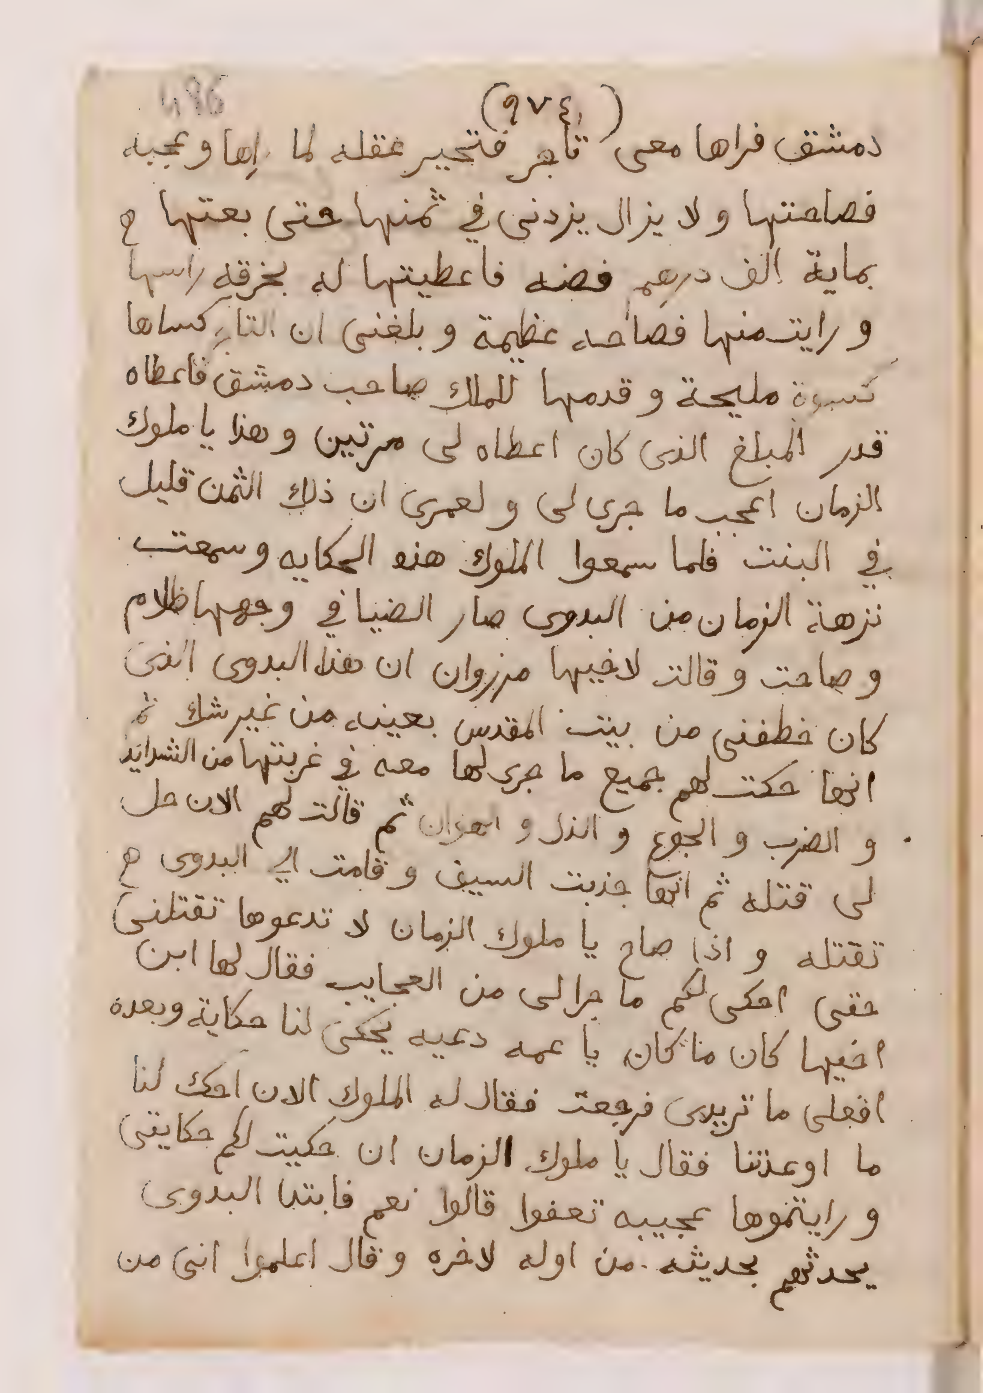 486
(٩٧٤)
دمشق فراها معى تاجر فتحير عقله لما راها وعجبه
فصاحتها ولا يزال يزدنى في ثمنها حتى بعتها ح
بماية الف درهم فضه فاعطيتها له بخرقة راسها
ورايت منها فصاحه عظيمة وبلغنى ان التاجر كساها
كسوة مليحة وقدمها للملك صاحب دمشق فاعطاه
قدر المبلغ الذى كان اعطاه لى مرتين وهذا يا ملوك
الزمان اعجب ما جرى لى ولعمرى ان ذلك الثمن قليل
في البنت فلما سمعوا الملوك هذه الحكايه وسمعت
نزهة الزمان من البدوى صار الضيا في وجهها ظلام
وصاحت وقالت لاخيها مرزوان ان هذا البدوى الذى
كان خطفنى من بيت المقدس بعينه من غير شك ثم
انها حكت لهم جميع ما جرى لها معه في غربتها من الشدايد
والضرب والجوع والذل والهوان ثم قالت لهم الان حل
لى قتله ثم انها جذبت السيف وقامت الي البدوى ح
تقتله واذا صاح يا ملوك الزمان لا تدعوها تقتلنى
حتى احكى لكم ما جرا لى من العجايب فقال لها ابن
اخيها كان ما كان يا عمه دعيه يحكى لنا حكاية وبعده
افعلى ما تريدى فرجعت فقال له الملوك الان احك لنا
ما اوعدتنا فقال يا ملوك الزمان ان حكيت لكم حكايتى
ورايتموها عجيبه تعفوا قالوا نعم فابتدا البدوى
يحدثهم بحديثه من اوله لاخره وقال اعلموا انى من